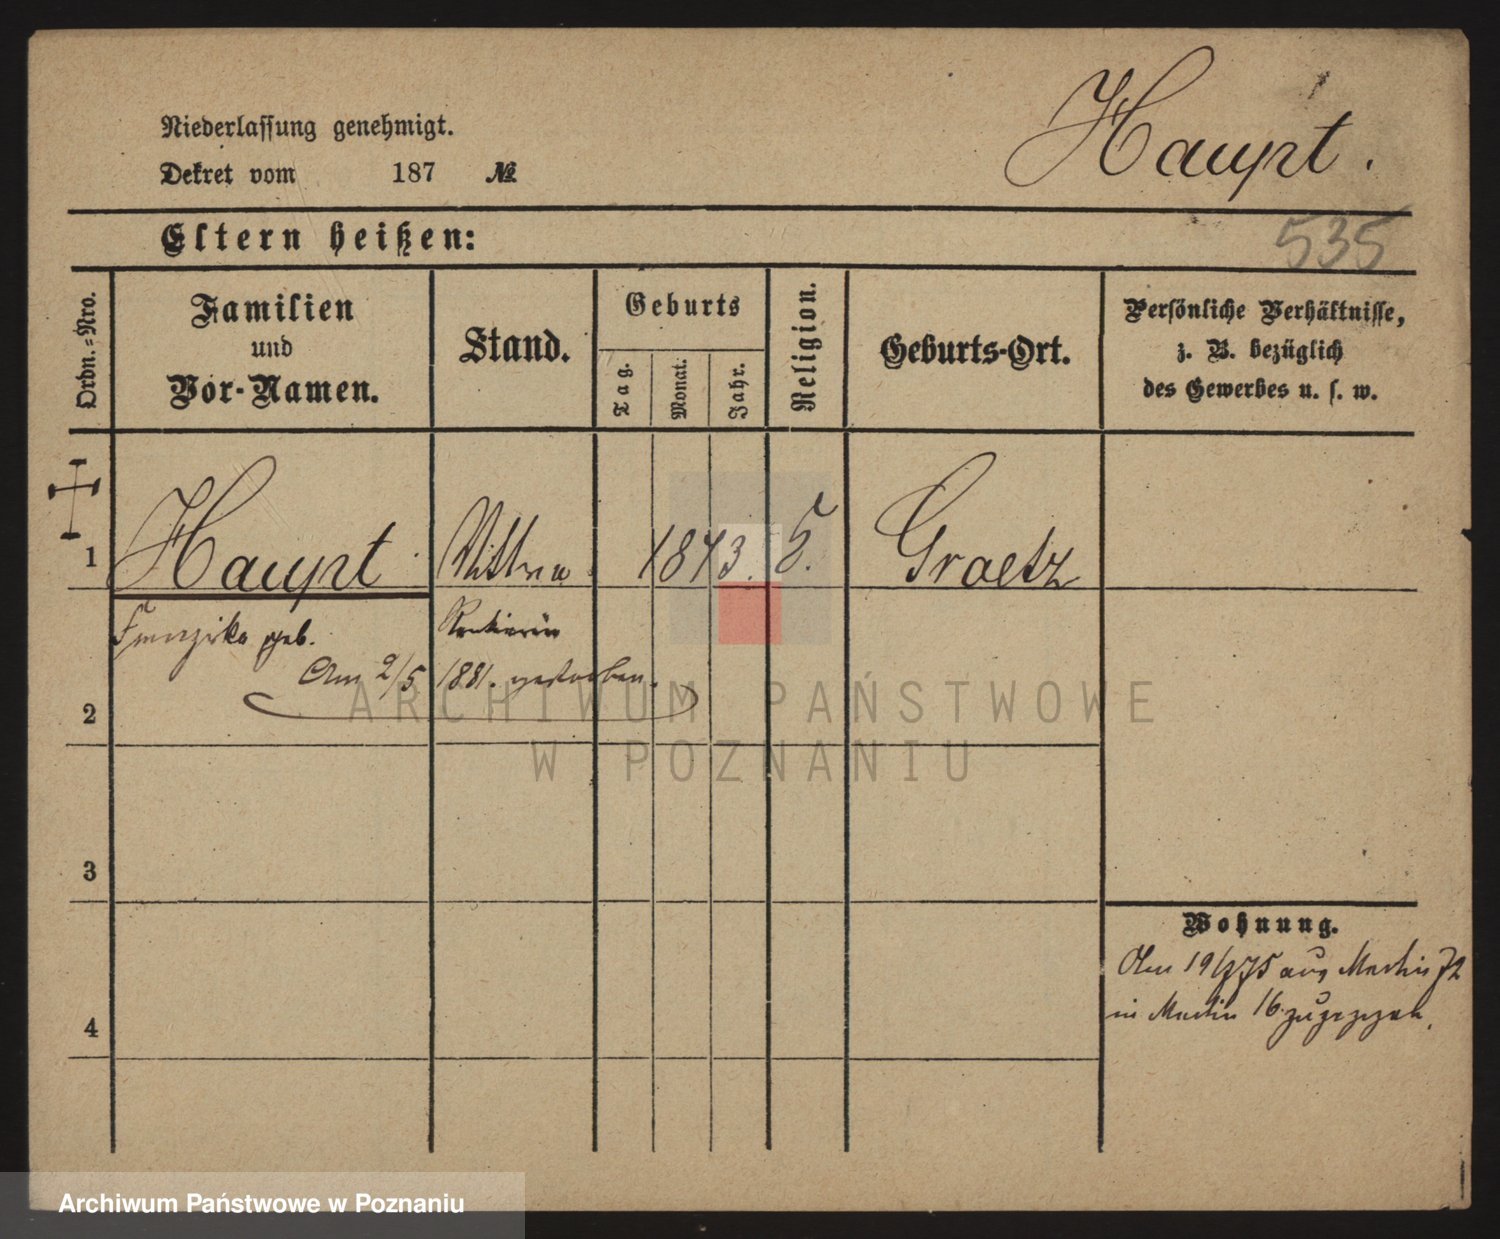 Haupt.
Niederlassung genehmigt.
Dekret vom 187 №
535
Eltern heißen:
Ordn.-Nro.
Familien
und
Vor-Namen.
Stand.
Geburts
Tag.
Monat.
Jahr.
Religion.
Geburts-Ort.
Persönliche Verhältnisse,
z. B. bezüglich
des Gewerbes u. s. w.
1 Haupt Wittwe Graetz
geb. Rentierin
Am 2/5 1881. gestorben.
2
3
4
Wohnung.
Am aus Martin 72
in Martin 16 zugezogen.
ARCHIWUM PAŃSTWOWE
W POZNANIU
Archiwum Państwowe w Poznaniu